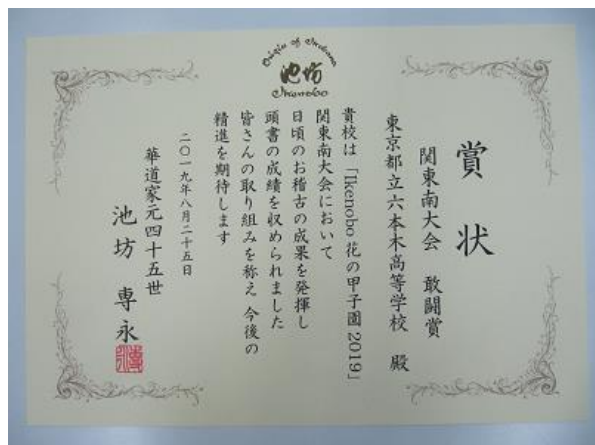 Origin of Ikebana
池坊
Ikenobo
賞状
関東南大会 敢闘賞
東京都立六本木高等学校 殿
貴校は「Ikenobo 花の甲子園 2019」
関東南大会において
日頃のお稽古の成果を発揮し
頭書の成績を収められました
皆さんの取り組みを称え 今後の
精進を期待します
二〇一九年八月二十五日
華道家元四十五世
池坊 専永